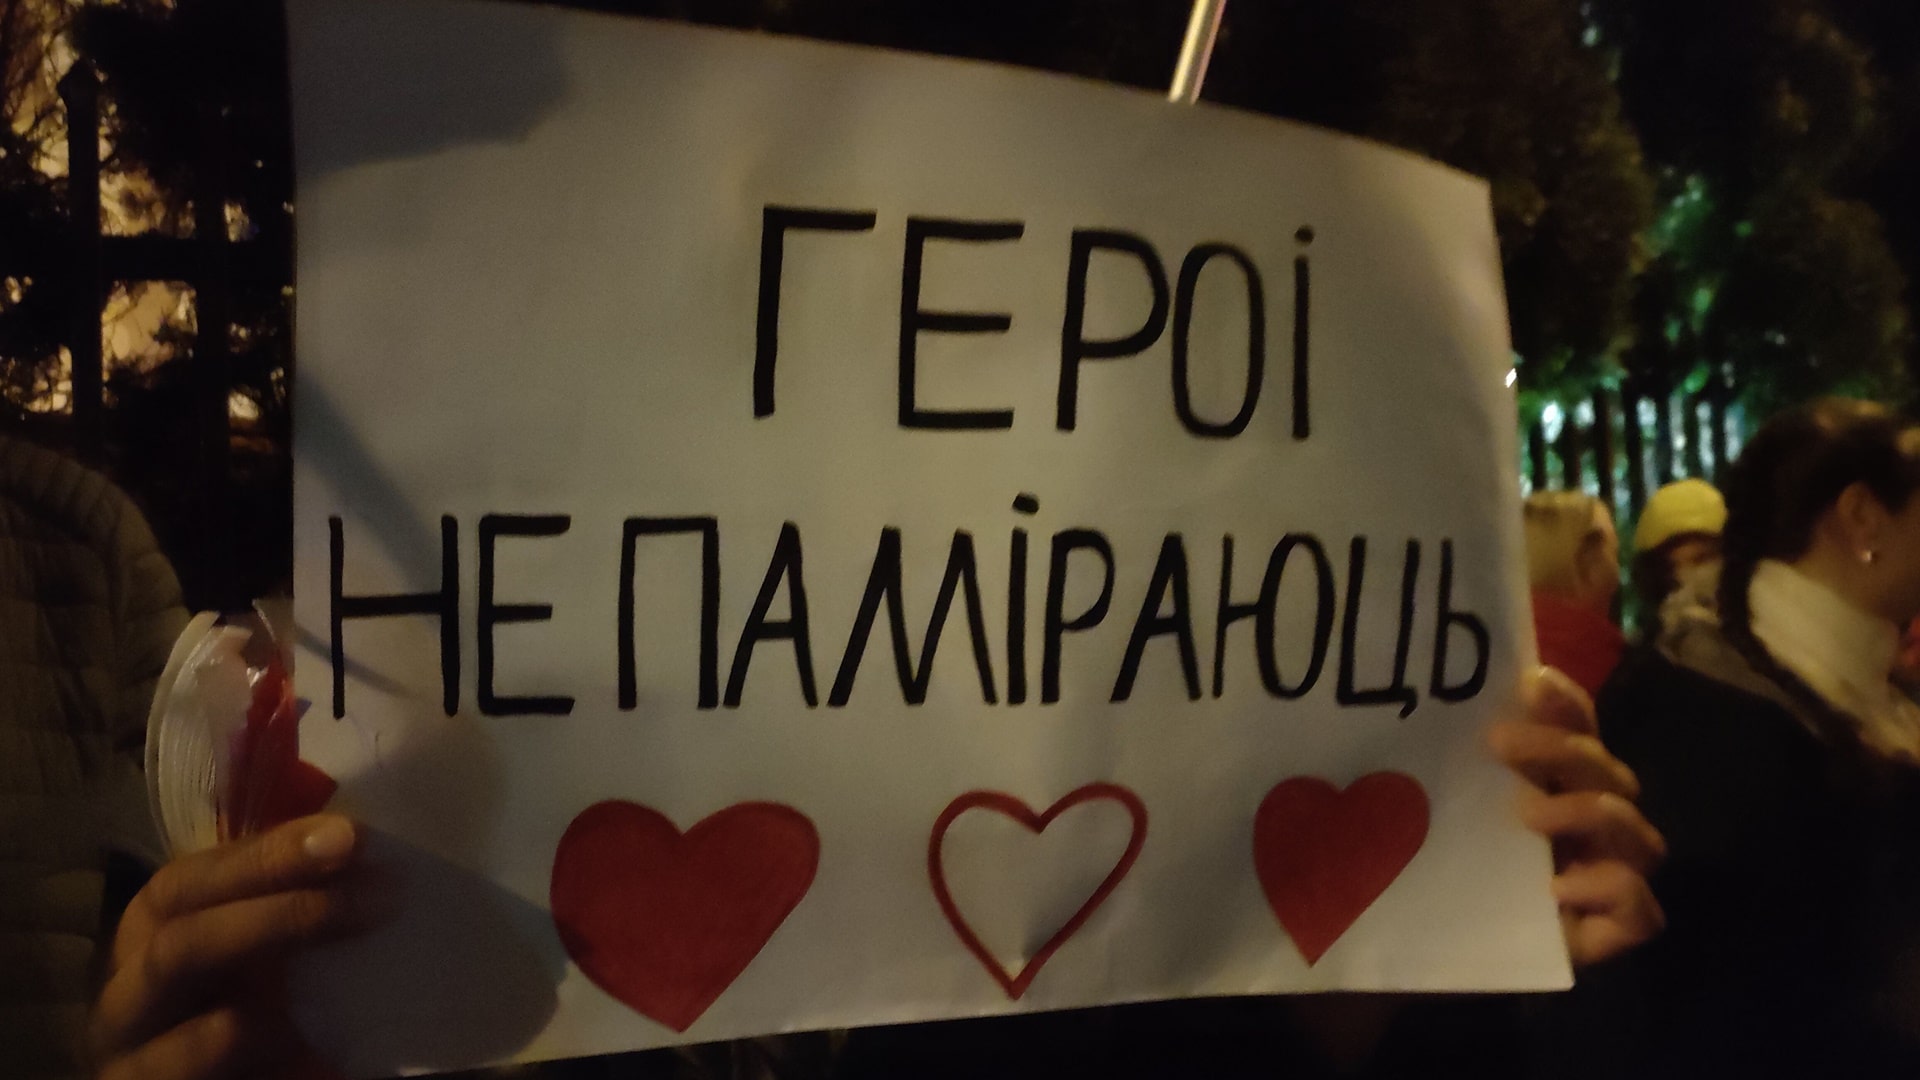 ГЕРОІ
НЕ ПАМІРАЮЦЬ